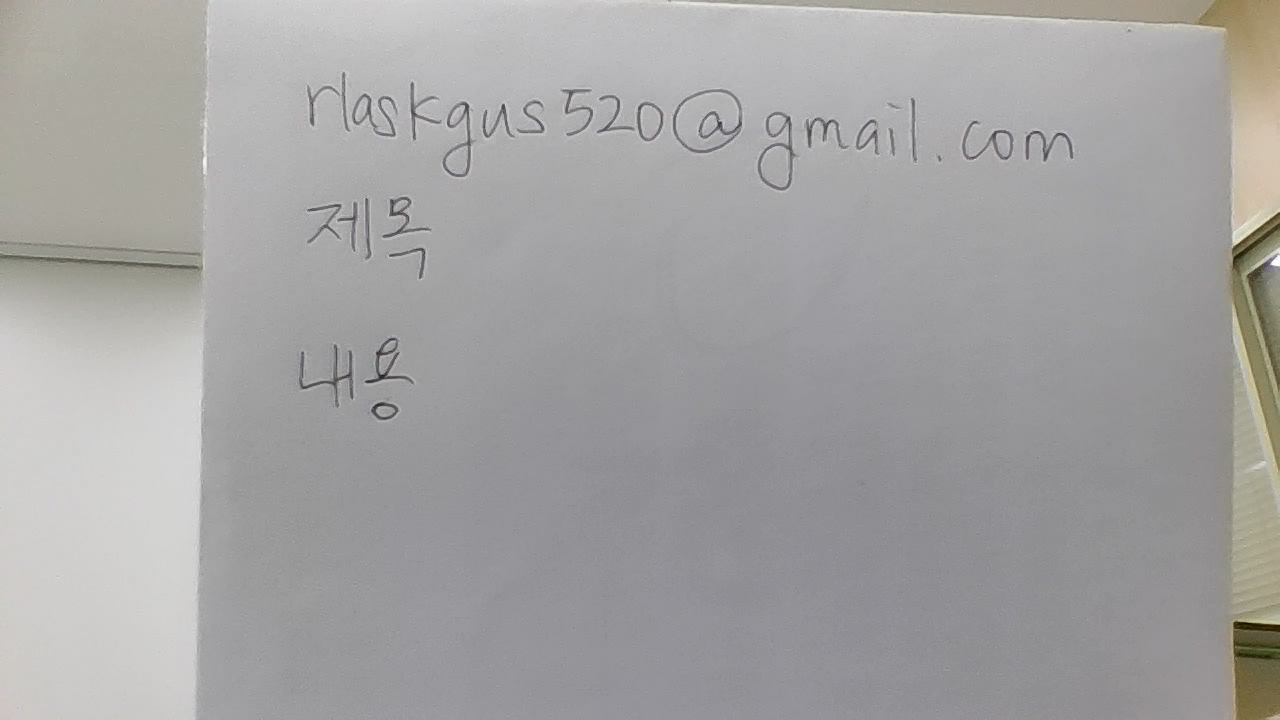 rlaskgus520@gmail.com
제목
내용